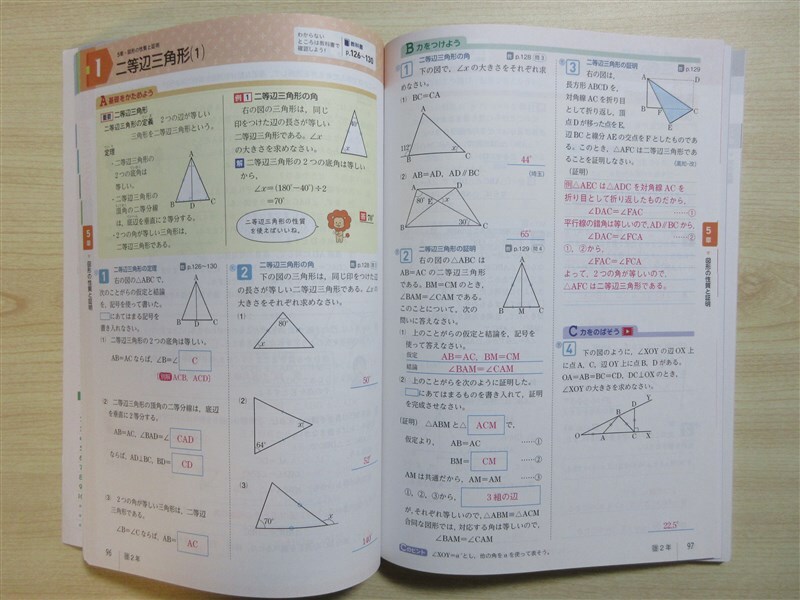 1
5章・図形の性質と証明
二等辺三角形(1)
わからない
ところは教科書で
確認しよう!
教科書
p.126~130
A 基礎をかためよう
二等辺三角形
二等辺三角形の定義 2つの辺が等しい
三角形を二等辺三角形という。
定理
・二等辺三角形の
2つの底角は
等しい。
・二等辺三角形の
頂角の二等分線
は、底辺を垂直に2等分する。
・2つの角が等しい三角形は、
二等辺三角形である。
A
B D C
例1 二等辺三角形の角
右の図の三角形は、同じ
印をつけた辺の長さが等しい
二等辺三角形である。∠x
の大きさを求めなさい。
40°
x
解 二等辺三角形の2つの底角は等しい
から、
∠x=(180°-40°)÷2
=70°
答 70°
二等辺三角形の性質
を使えばいいね。
5章
図形の性質と証明
1
二等辺三角形の定理
p.128~130
右の図の△ABCで、
次のことがらの仮定と結論
を、記号を使って書いた。
□にあてはまる記号を
書き入れなさい。
A
B D C
① 二等辺三角形の2つの底角は等しい。
AB=AC ならば、∠B=∠ C
[別解 ACB, ACD]
② 二等辺三角形の頂角の二等分線は、底辺
を垂直に2等分する。
AB=AC, ∠BAD=∠ CAD
ならば、AD⊥BC, BD= CD
③ 2つの角が等しい三角形は、二等辺
三角形である。
∠B=∠C ならば、AB= AC
96
2年
2
二等辺三角形の角
p.128
下の図の三角形は、同じ印をつけた辺
の長さが等しい二等辺三角形である。∠xの
大きさをそれぞれ求めなさい。
(1)
80°
x
50°
(2)
x
64°
52°
(3)
70°
x
140°
B 力をつけよう
1
二等辺三角形の角
p.128 問3
下の図で、∠xの大きさをそれぞれ求
めなさい。
(1) BC=CA
A
112°
x
B C
44°
(2) AB=AD, AD∥BC
(埼玉)
A D
80° E x
30°
B C
65°
2
二等辺三角形の証明
p.129 問4
右の図の△ABCは
AB=ACの二等辺三角形
である。BM=CMのとき、
∠BAM=∠CAMである。
このことについて、次の
問いに答えなさい。
A
B M C
(1) 上のことがらの仮定と結論を、記号を
使って答えなさい。
仮定 AB=AC, BM=CM
結論 ∠BAM=∠CAM
(2) 上のことがらを次のように証明した。
□にあてはまるものを書き入れて、証明
を完成させなさい。
(証明) △ABMと△ ACM で、
仮定より、 AB=AC ……①
BM= CM ……②
AMは共通だから、AM=AM ……③
①、②、③から、 3組の辺
が、それぞれ等しいので、△ABM≡△ACM
合同な図形では、対応する角は等しいので、
∠BAM=∠CAM
∠XOY=a°とし、他の角をaを使って表そう。
3
二等辺三角形の証明
p.129
右の図は、
長方形ABCDを、
対角線ACを折り目
として折り返し、頂
点Dが移った点をE、
辺BCと線分AEの交点をFとしたものであ
る。このとき、△AFCは二等辺三角形であ
ることを証明しなさい。
A D
B F C
E
(証明)
例 △AECは△ADCを対角線ACを
折り目として折り返したものだから、
∠DAC=∠FAC ……①
平行線の錯角は等しいので、AD∥BCから、
∠DAC=∠FCA ……②
①、②から、
∠FAC=∠FCA
よって、2つの角が等しいので、
△AFCは二等辺三角形である。
C 力をのばそう
4
下の図のように、∠XOYの辺OX上
に点A, C、辺OY上に点B, Dがある。
OA=AB=BC=CD, DC⊥OXのとき、
∠XOYの大きさを求めなさい。
Y
D
B
O A C X
22.5°
5章
図形の性質と証明
2年
97